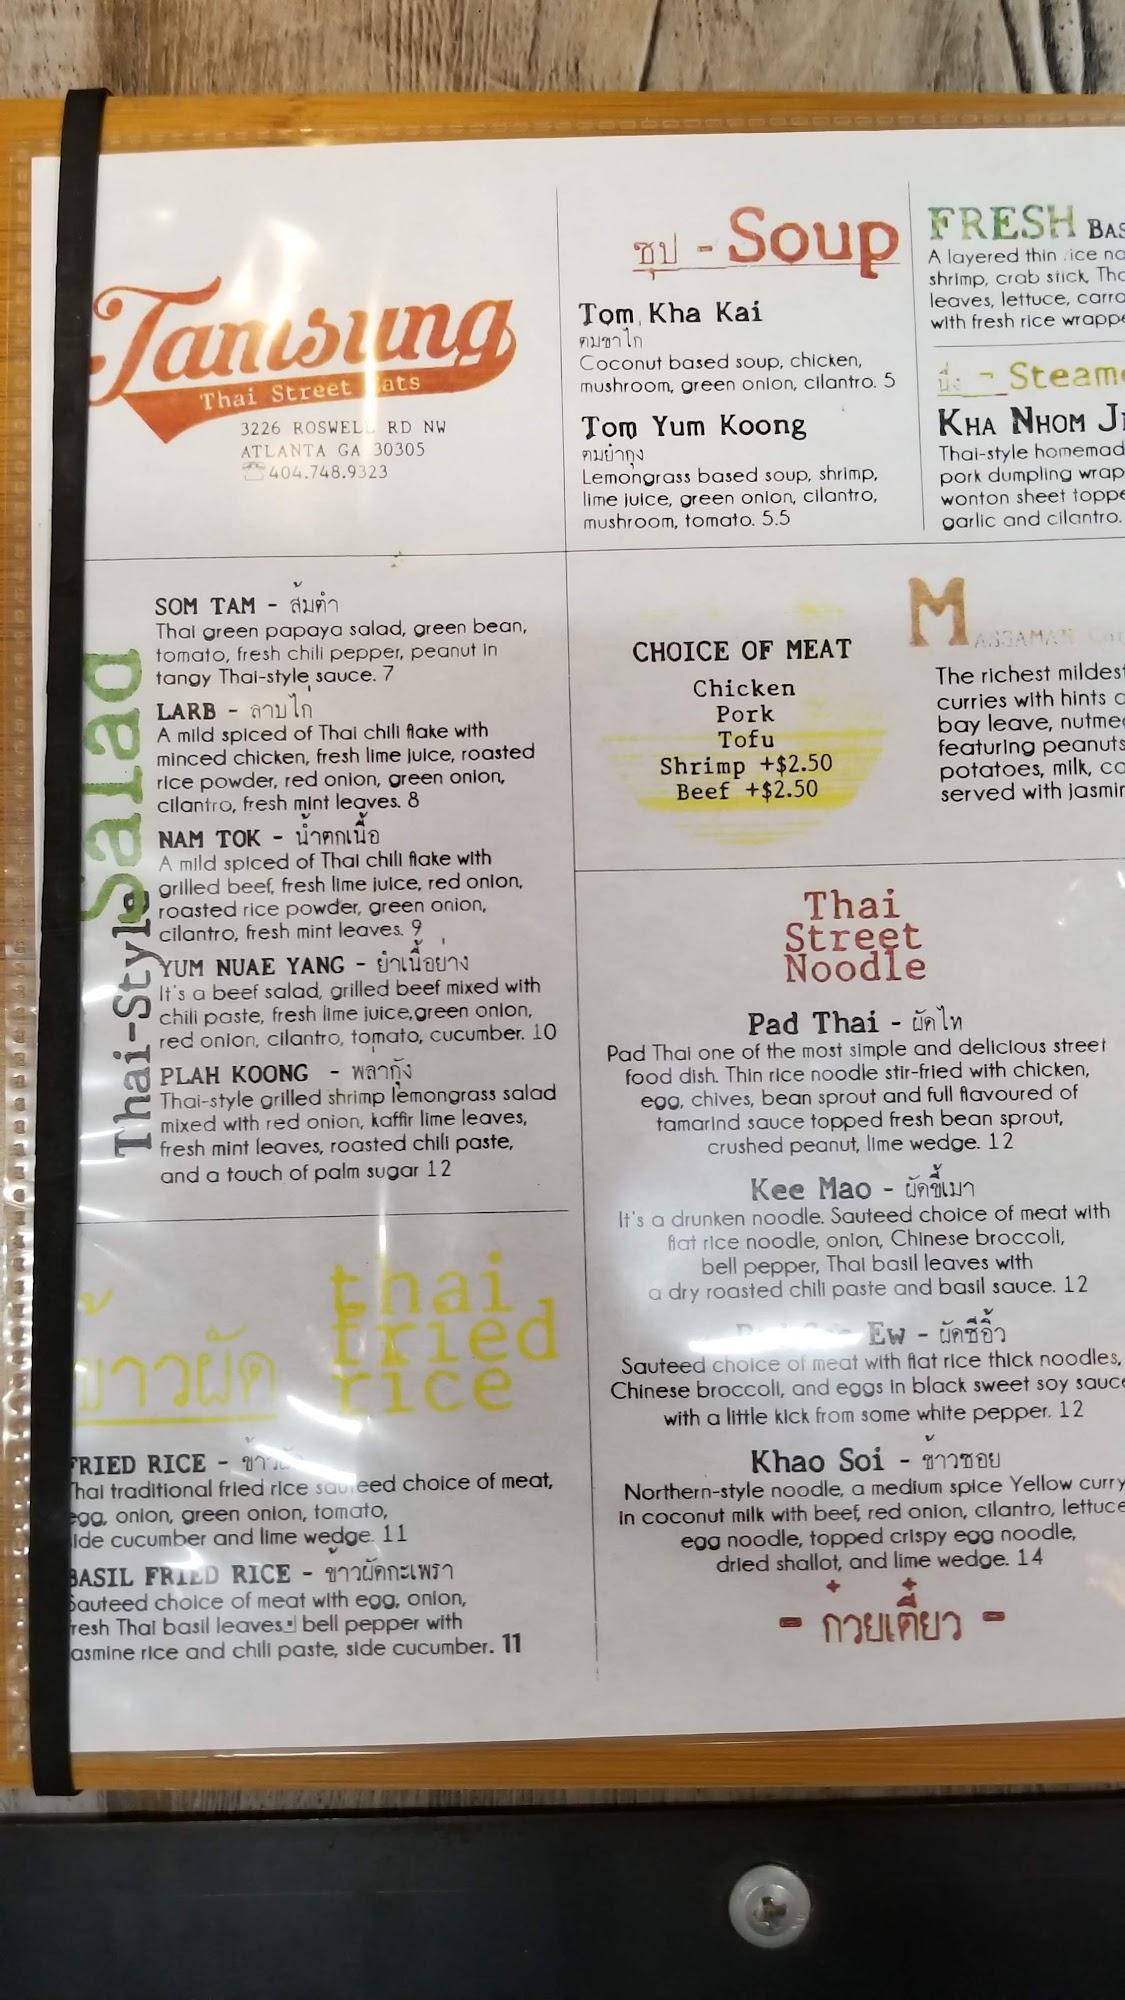 Tamsung
Thai Street Eats
3226 ROSWELL RD NW
ATLANTA GA 30305
☎404.748.9323
ซุป - Soup
Tom Kha Kai
ต้มข่าไก่
Coconut based soup, chicken,
mushroom, green onion, cilantro. 5
Tom Yum Koong
ต้มยำกุ้ง
Lemongrass based soup, shrimp,
lime juice, green onion, cilantro,
mushroom, tomato. 5.5
FRESH
A layered thin rice
shrimp, crab stick,
leaves, lettuce,
with fresh rice
นึ่ง -
KHA NHOM
Thai-style
pork dumpling
wonton sheet
garlic and cilantro.
Thai-Style Salad
SOM TAM - ส้มตำ
Thai green papaya salad, green bean,
tomato, fresh chili pepper, peanut in
tangy Thai-style sauce. 7
LARB - ลาบไก่
A mild spiced of Thai chili flake with
minced chicken, fresh lime juice, roasted
rice powder, red onion, green onion,
cilantro, fresh mint leaves. 8
NAM TOK - น้ำตกเนื้อ
A mild spiced of Thai chili flake with
grilled beef, fresh lime juice, red onion,
roasted rice powder, green onion,
cilantro, fresh mint leaves. 9
YUM NUAE YANG - ยำเนื้อย่าง
It's a beef salad, grilled beef mixed with
chili paste, fresh lime juice,green onion,
red onion, cilantro, tomato, cucumber. 10
PLAH KOONG - พลากุ้ง
Thai-style grilled shrimp lemongrass salad
mixed with red onion, kaffir lime leaves,
fresh mint leaves, roasted chili paste,
and a touch of palm sugar 12
CHOICE OF MEAT
Chicken
Pork
Tofu
Shrimp +$2.50
Beef +$2.50
MASSAMAN
The richest mildest
curries with hints
bay leave,
featuring peanuts
potatoes, milk,
served with
Thai
Street
Noodle
Pad Thai - ผัดไท
Pad Thai one of the most simple and delicious street
food dish. Thin rice noodle stir-fried with chicken,
egg, chives, bean sprout and full flavoured of
tamarind sauce topped fresh bean sprout,
crushed peanut, lime wedge. 12
Kee Mao - ผัดขี้เมา
It's a drunken noodle. Sauteed choice of meat with
flat rice noodle, onion, Chinese broccoli,
bell pepper, Thai basil leaves with
a dry roasted chili paste and basil sauce. 12
Ew - ผัดซีอิ้ว
Sauteed choice of meat with flat rice thick noodles,
Chinese broccoli, and eggs in black sweet soy
with a little kick from some white pepper. 12
Khao Soi - ข้าวซอย
Northern-style noodle, a medium spice Yellow curry
in coconut milk with beef, red onion, cilantro,
egg noodle, topped crispy egg noodle,
dried shallot, and lime wedge. 14
- ก๋วยเตี๋ยว -
ข้าวผัด
thai
fried
rice
FRIED RICE -
Thai traditional fried rice sauteed choice of meat,
egg, onion, green onion, tomato,
side cucumber and lime wedge. 11
BASIL FRIED RICE - ข้าวผัดกะเพรา
Sauteed choice of meat with egg, onion,
fresh Thai basil leaves, bell pepper with
jasmine rice and chili paste, side cucumber. 11